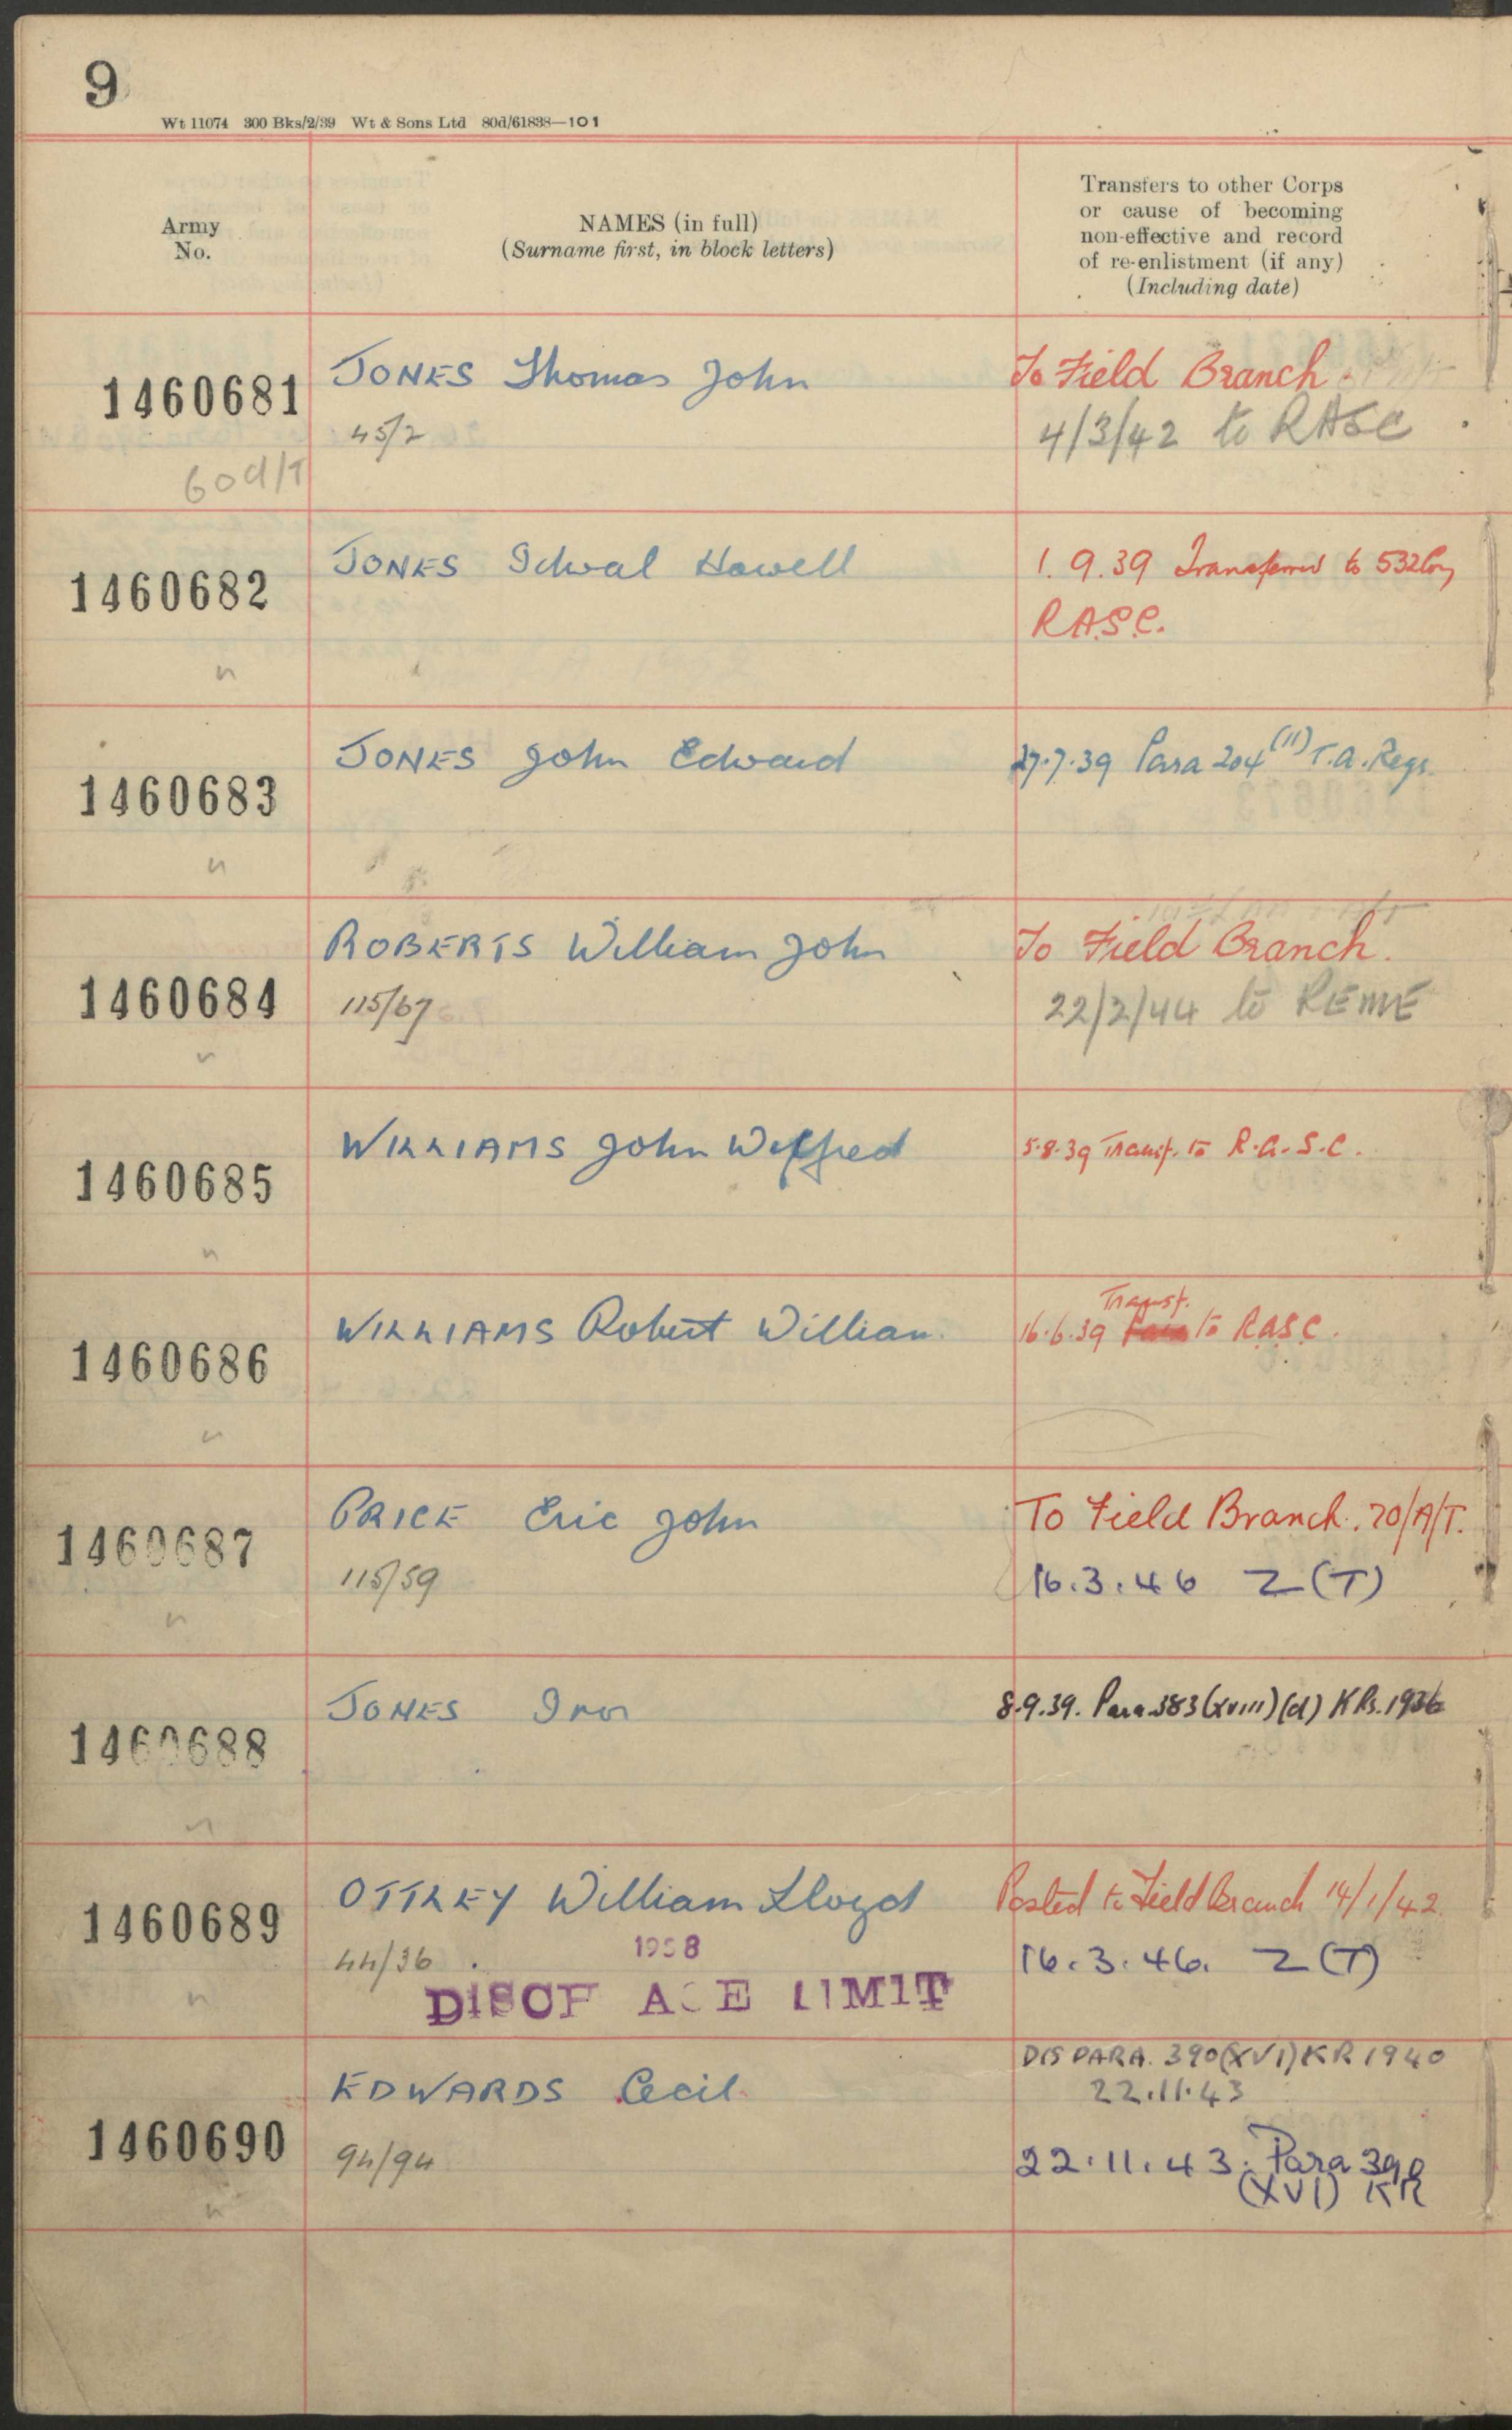 9
Wt 11074 300 Bks/2/39 Wt & Sons Ltd 80d/61838—101
Army
No.
NAMES (in full)
(Surname first, in block letters)
Transfers to other Corps
or cause of becoming
non-effective and record
of re-enlistment (if any)
(Including date)
1460681
JONES Thomas John
To Field Branch.
45/2
4/3/42 to RASC
60d/T
1460682
JONES Idwal Howell
1.9.39 Transferred to 532 Coy
R.A.S.C.
1460683
JONES John Edward
27.7.39 Para 204 (11) T.A. Regs.
1460684
ROBERTS William John
To Field Branch.
115/67
22/2/44 to REME
1460685
WILLIAMS John Wilfred
5.8.39 Transf. to R.A.S.C.
1460686
WILLIAMS Robert William
Transf.
16.6.39 Para to RASC.
1460687
PRICE Eric John
To Field Branch. 70/A/T.
115/59
16.3.46 Z(T)
1460688
JONES Ivor
8.9.39. Para 383 (XVIII) (d) KRs. 1936
1460689
OTTLEY William Lloyd
Posted to Field Branch 14/1/42.
44/36
1958
16.3.46. Z(T)
DISCH AGE LIMIT
1460690
EDWARDS Cecil
DIS PARA. 390 (XVI) KR 1940
22.11.43
94/94
22.11.43. Para 390
(XVI) KR